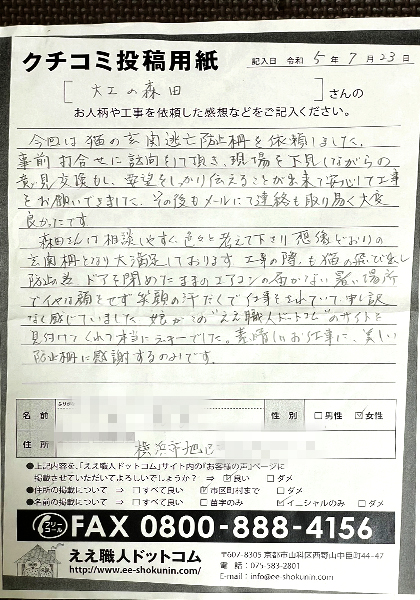 クチコミ投稿用紙 記入日 令和 5年 7月 23日
[大工の森田]さんの
お人柄や工事を依頼した感想などをご記入ください。
今回は猫の玄関逃亡防止柵を依頼しました。
事前打合せに訪問をして頂き、現場を下見しながらの
意見交換もし、要望をしっかり伝えることが出来て安心して工事
をお願いできました。その後もメールにて連絡も取り易く大変
良かったです。
森田さんは相談しやすく、色々と考えて下さり想像どおりの
玄関柵となり大満足しております。工事の際も猫の飛び出し
防止の為ドアを閉めたままのエアコンの届かない暑い場所
でイヤな顔もせず笑顔の汗だくで仕事をされていて申し訳
なく感じていました。娘がこの"ええ職人ドットコム"のサイトを
見付けてくれて本当にラッキーでした。素晴しいお仕事に、美しい
防止柵に感謝するのみです。
名前 ふりがな 性別 □男性 ☑女性
住所 横浜市旭区
●上記内容を、「ええ職人ドットコム」サイト内の「お客様の声」ページに
掲載させていただいてよろしいでしょうか? ⇒ ☑良い □ダメ
●住所の掲載について ⇒ □すべて良い ☑市区町村まで □ダメ
●名前の掲載について ⇒ □すべて良い □苗字のみ ☑イニシャルのみ □ダメ
フリーコール FAX 0800-888-4156
ええ職人ドットコム
http://www.ee-shokunin.com/
〒607-8305 京都市山科区西野山中臣町44-47
電話:075-583-2801
E-mail:info@ee-shokunin.com